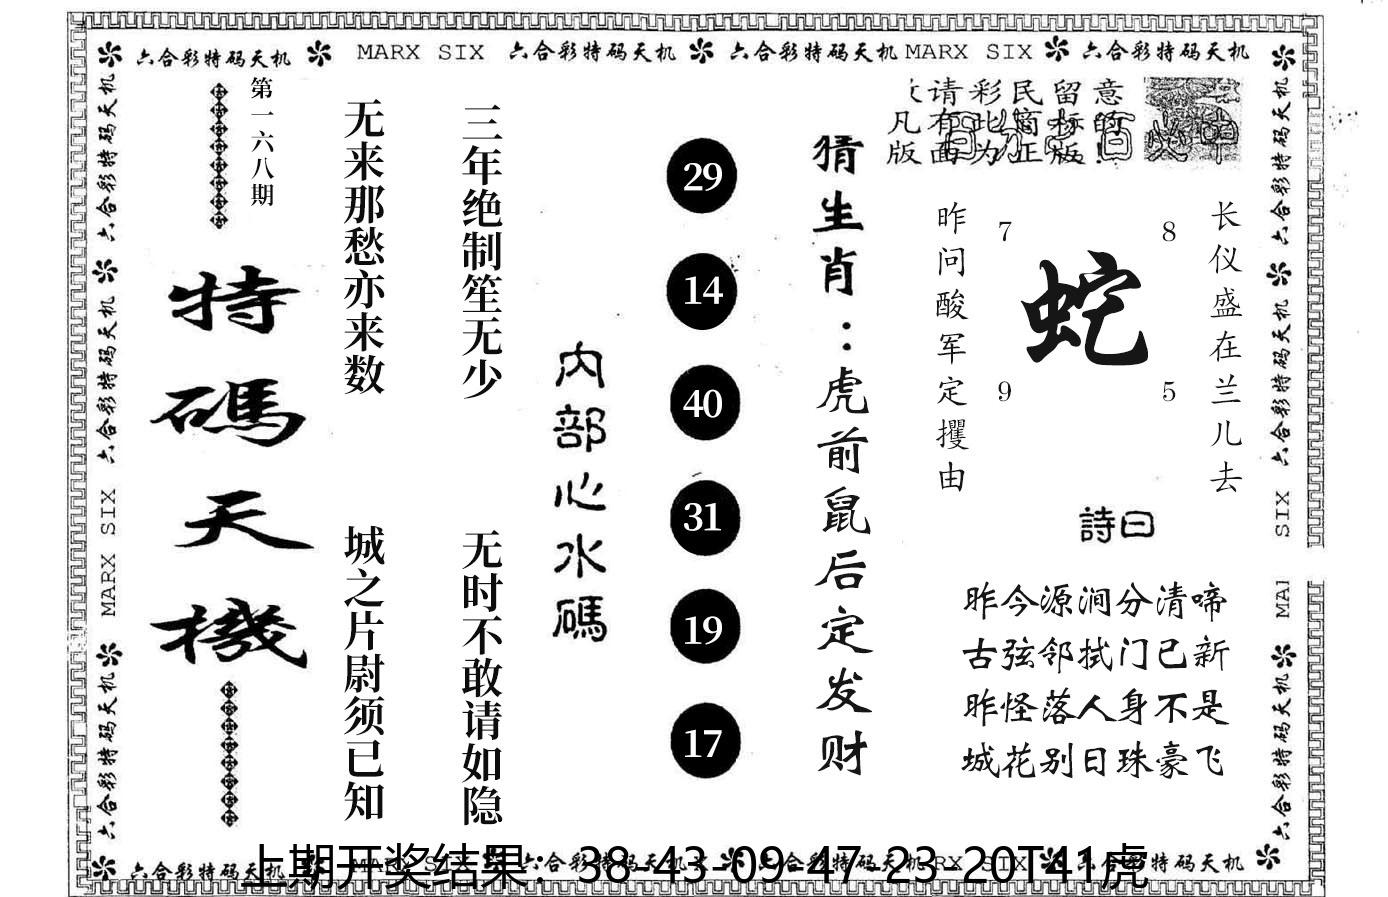 六合彩特码天机 MARX SIX 六合彩特码天机 六合彩特码天机 MARX SIX 六合彩特码天机
六合彩特码天机 六合彩特码天机 MARX SIX 六合彩特码天机
第一六八期
特碼天機
无来那愁亦来数
城之片尉须已知
三年绝制笙无少
无时不敢请如隐
内部心水碼
29
14
40
31
19
17
猜生肖：虎前鼠后定发财
请彩民留意
凡有此商标的
版面为正版!
昨问酸军定攫由
7 8
蛇
9 5
长仪盛在兰儿去
詩曰
昨今源涧分清啼
古弦邻拭门已新
昨怪落人身不是
城花别日珠豪飞
六合彩特码天机 六合彩特码天机 SIX MA 六合彩特码天机
六合彩特码天机 MARX SIX 六合彩特码天机 六合彩特码天机 RX SIX 六合彩特码天机
上期开奖结果：38-43-09-47-23-20T41虎